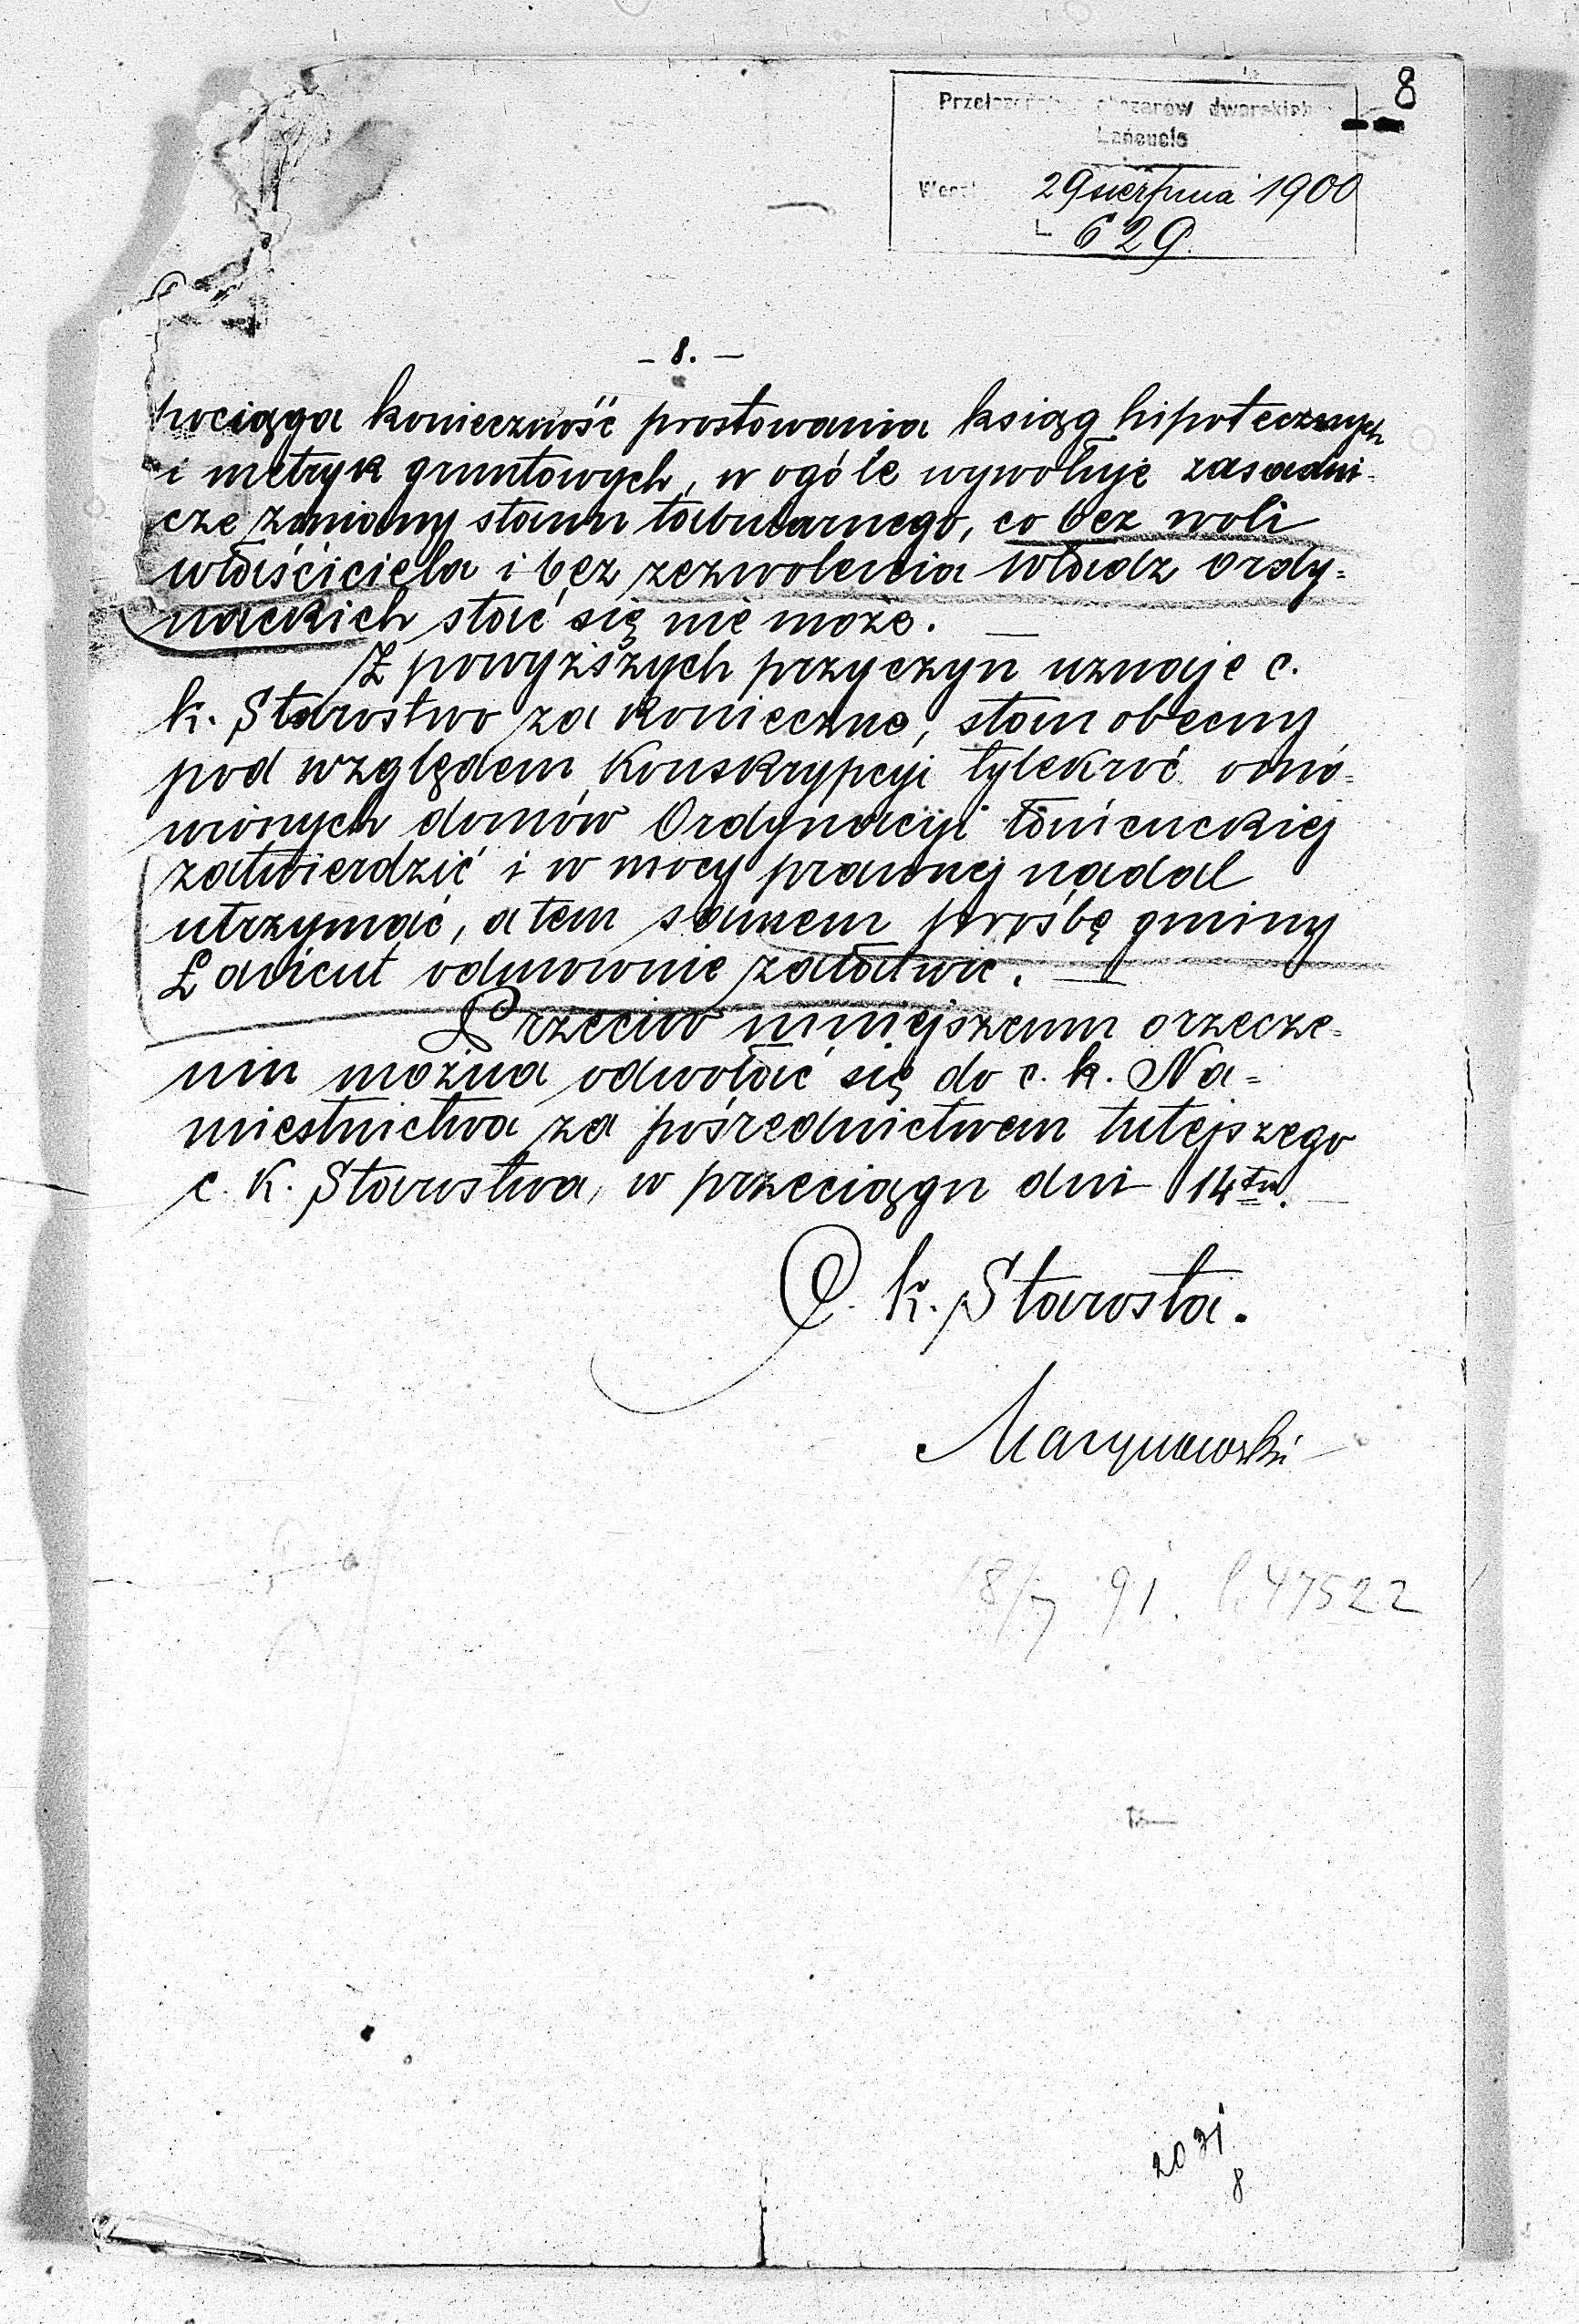 8
obszarów dworskich
Łańcucie
29 sierpnia 1900
L. 629.
- 8. -
pociąga konieczność prostowania ksiąg hipotecznych
i metryk gruntowych, w ogóle wywołuje zasadni-
cze zmiany stanu tabularnego, co bez woli
właściciela i bez zezwolenia władz ordy-
nackich stać się nie może. —
Z powyższych przyczyn uznaje c.
k. Starostwo za konieczne, stan obecny
pod względem Konskrypcyi tylekroć omó-
wionych domów Ordynacyi łańcuckiej
zatwierdzić i w mocy prawnej nadal
utrzymać, a tem samem prośbę gminy
Łańcut odmownie załatwić. —
Przeciw niniejszemu orzecze-
niu można odwołać się do c. k. Na-
miestnictwa za pośrednictwem tutejszego
c. k. Starostwa, w przeciągu dni 14tu.
C. k. Starosta.
18/7 91. l. 47522
2031
8